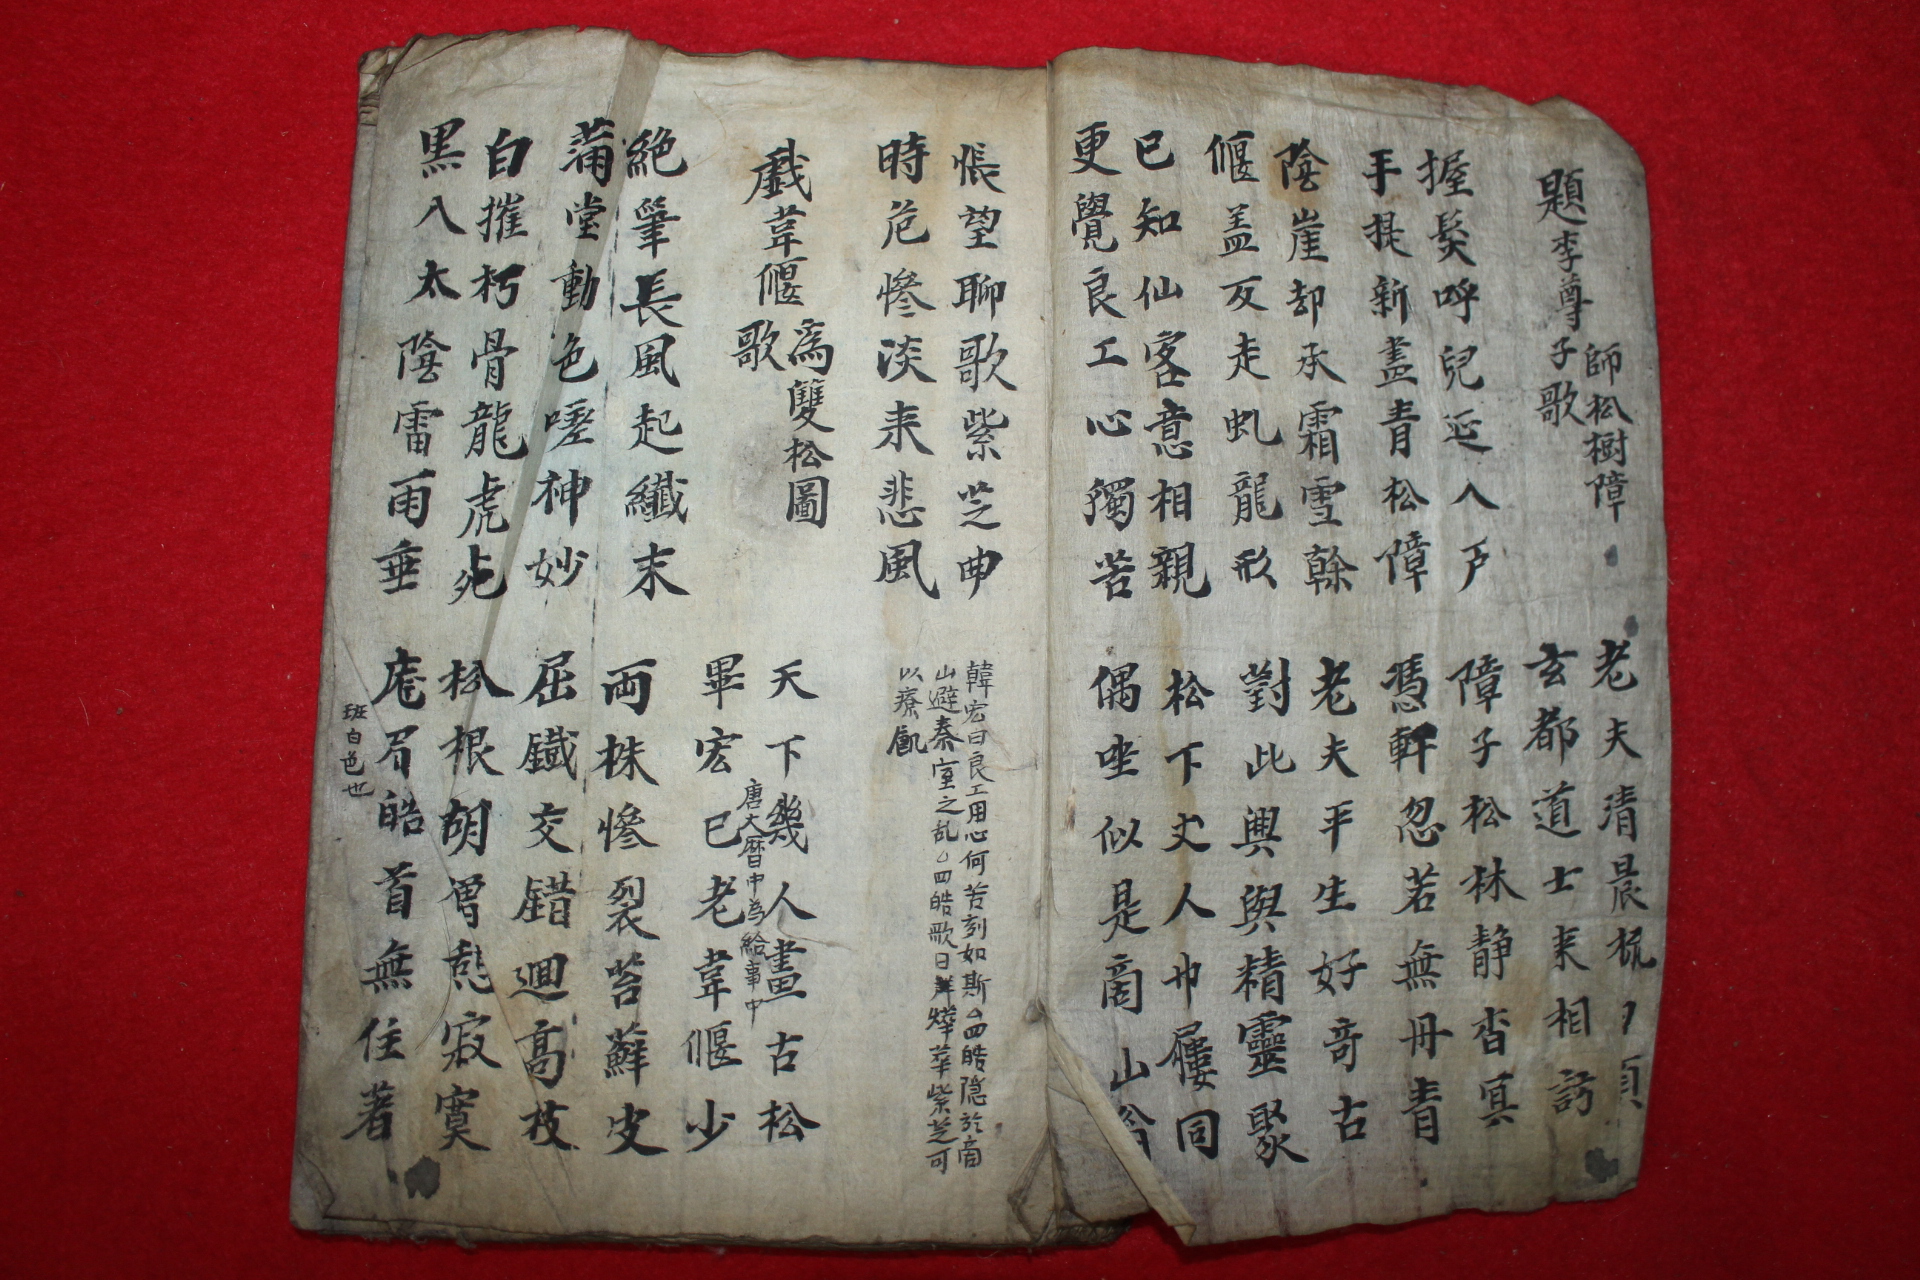 題李尊師松樹障子歌
老夫清晨梳白頭
玄都道士来相訪
握髮呼兒延入戶
手提新畫青松障
障子松林静杳冥
憑軒忽若無丹青
陰崖却承霜雪幹
偃盖反走虬龍形
老夫平生好奇古
對此興與精靈聚
已知仙客意相親
更覺良工心獨苦
松下丈人巾屨同
偶坐似是商山翁
悵望聊歌紫芝曲
時危慘淡来悲風
韓宏曰良工用心何苦刻如斯四皓隐於商
山避秦室之乱四皓歌曰燁華紫芝可
以療飢
戱韋偃為雙松圖歌
天下幾人畫古松
畢宏已老韋偃少
唐大曆中為給事中
絕筆長風起纖末
蒲堂動色嗟神妙
両株慘裂苔蘚皮
屈鐵交錯迴高枝
白摧朽骨龍虎死
黒入太陰雷雨垂
松根胡僧憩寂寞
庬眉皓首無住著
班白色也